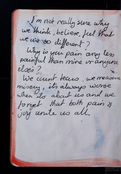 I'm not really sure why
we think, believe, feel that
we're so different?
Why is your pain any less
painful than mine or anyone
else's?
We count tears, we measure
misery, it's always worse
when it's about us and we
forget that both pain &
joy unite us all.